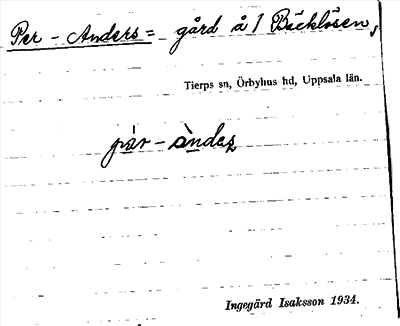 Per-Anders= gård å 1 Bäcklösen,
Tierps sn, Örbyhus hd, Uppsala län.
pär-àndaʂ
Ingegärd Isaksson 1934.